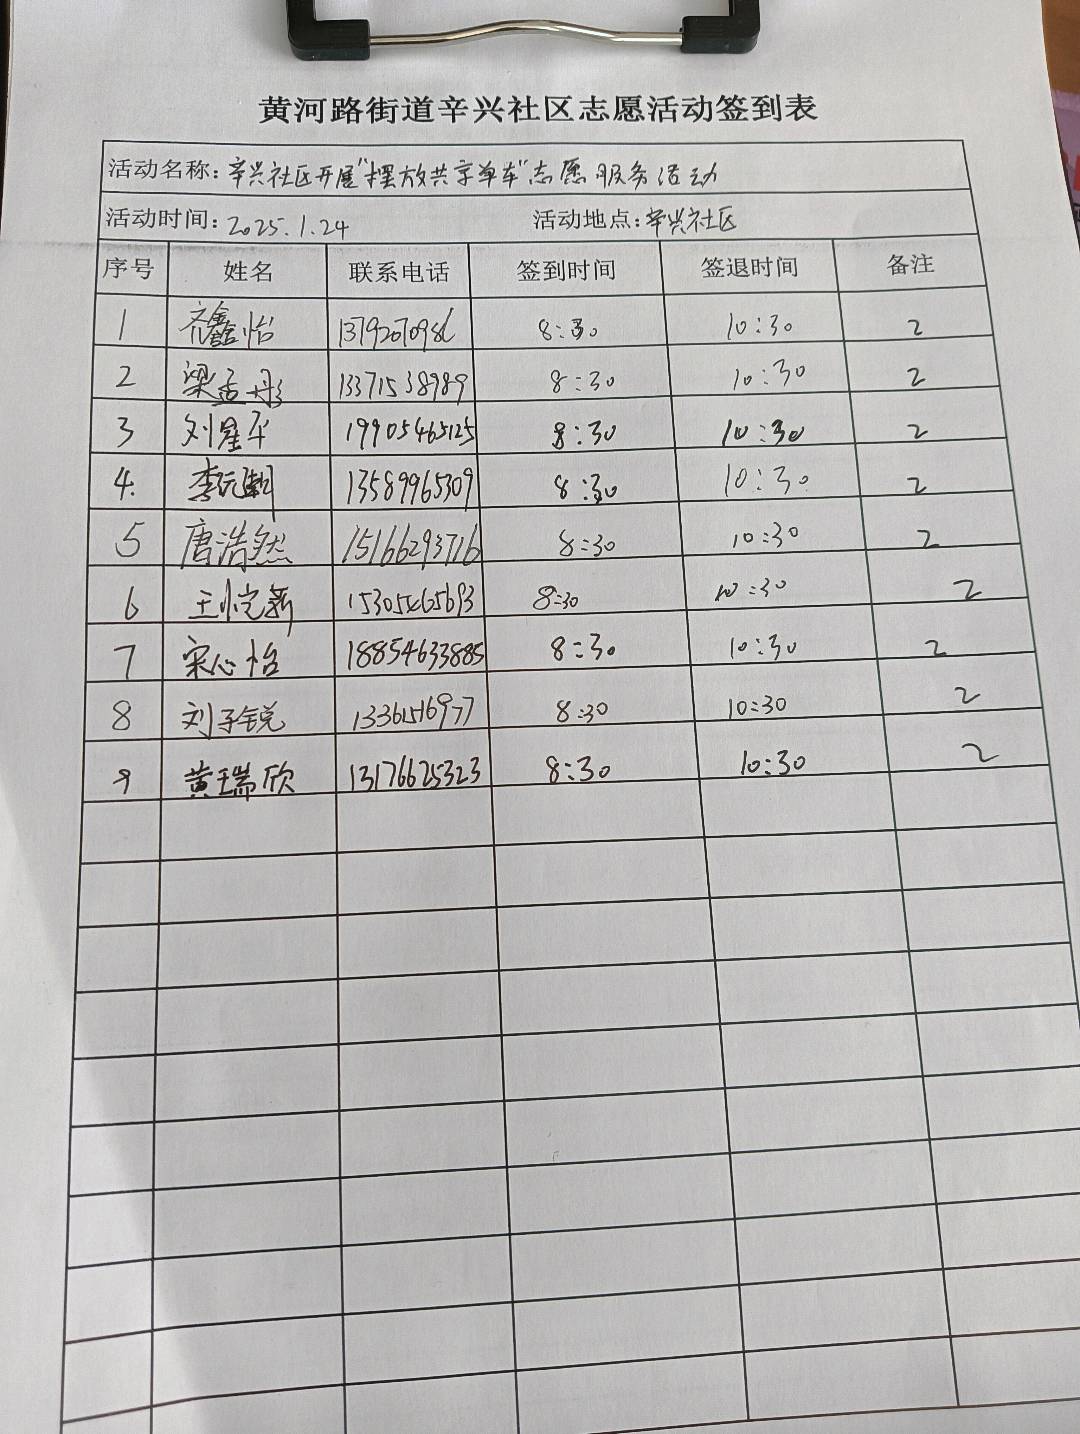 黄河路街道辛兴社区志愿活动签到表
活动名称:辛兴社区开展"摆放共享单车"志愿服务活动
活动时间:2025.1.24 活动地点:辛兴社区
序号 姓名 联系电话 签到时间 签退时间 备注
1 齐鑫怡 13792070986 8:30 10:30 2
2 梁孟彤 13371538989 8:30 10:30 2
3 刘星辛 19905465125 8:30 10:30 2
4. 李沅 13589965309 8:30 10:30 2
5 唐浩然 15166293716 8:30 10:30 2
6 王悦新 15305465693 8:30 10:30 2
7 宋心怡 18854633885 8:30 10:30 2
8 刘子锐 13361516977 8:30 10:30 2
9 黄瑞欣 13176625323 8:30 10:30 2